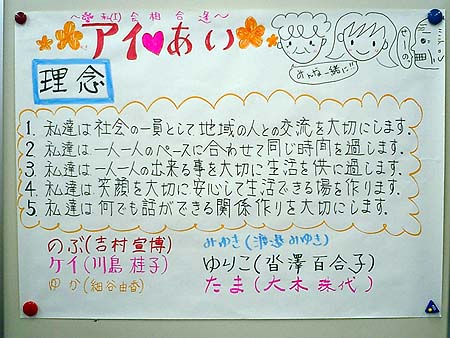 ～愛 私(I) 会 相 合 逢～
アイ♥あい
せーの
みんな一緒に!!
理念
1. 私達は社会の一員として地域の人との交流を大切にします。
2. 私達は一人一人のペースに合わせて同じ時間を過します。
3. 私達は一人一人の出来る事を大切に生活を供に過します。
4. 私達は笑顔を大切に安心して生活できる場を作ります。
5. 私達は何でも話ができる関係作りを大切にします。
のぶ(吉村宣博) みゆき(みゆき)
ケイ(川島桂子) ゆりこ(沓澤百合子)
ゆか(細谷由香) たま(大木珠代)